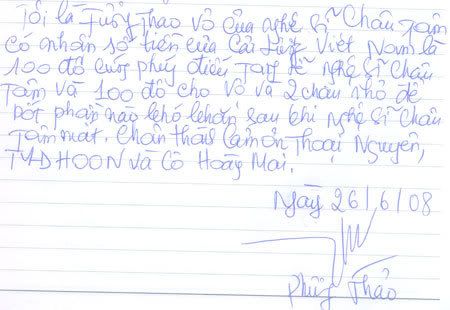 Tôi là Thảo vợ của nghệ sĩ Châu Tâm
có nhận số tiền của Cải Lương Việt Nam là
100 đô cúng phúng điếu Tang lễ nghệ sĩ Châu
Tâm và 100 đô cho vợ và 2 cháu nhỏ để
bớt phần nào khó khăn sau khi nghệ sĩ Châu
Tâm mất. Chân thành cảm ơn Thoại Nguyên,
và Cô Hoàng Mai.
Ngày 26/6/08
Thảo